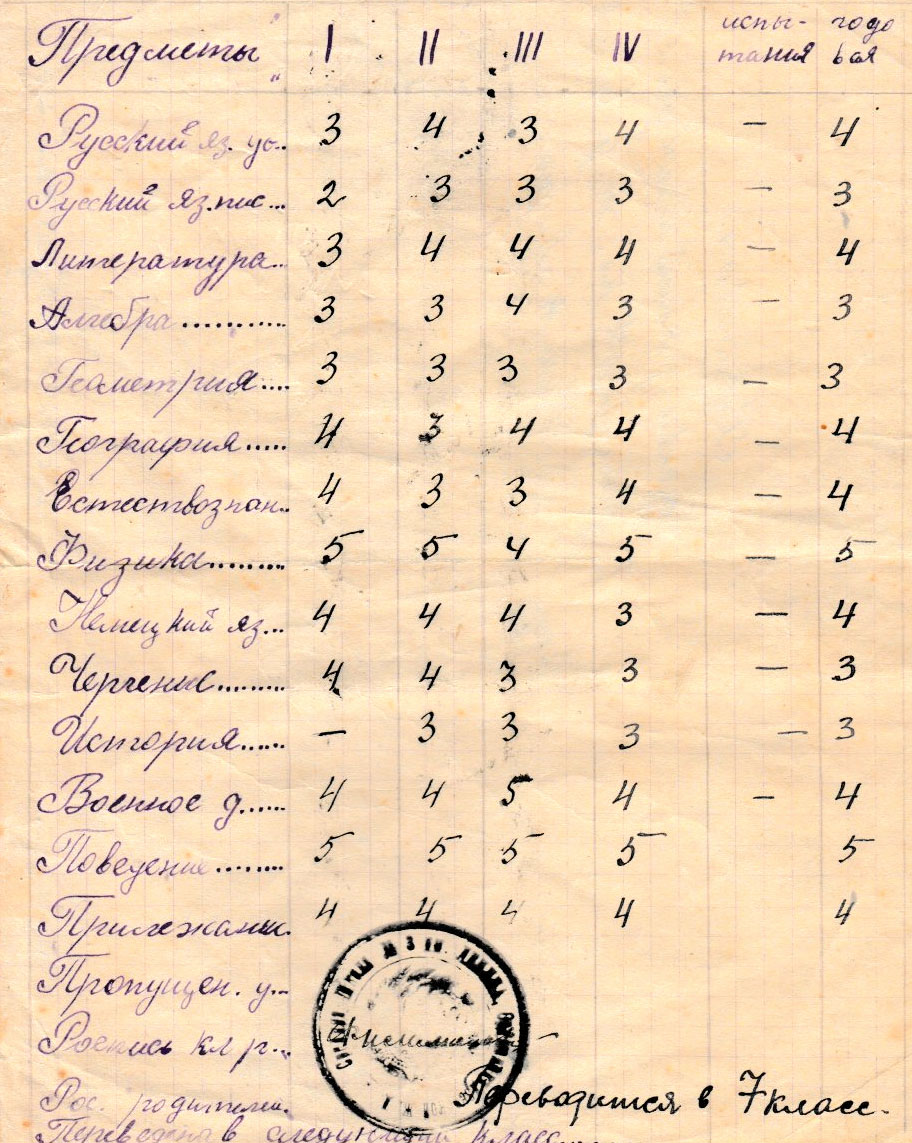 Предметы I II III IV испы- годо
тания вая
Русский яз. ус.. 3 4 3 4 — 4
Русский яз.пис... 2 3 3 3 — 3
Литература.. 3 4 4 4 — 4
Алгебра........... 3 3 4 3 — 3
Геометрия.... 3 3 3 3 — 3
География..... 4 3 4 4 — 4
Естествознан.. 4 3 3 4 — 4
Физика......... 5 5 4 5 — 5
Немецкий яз... 4 4 4 3 — 4
Черчение......... 4 4 3 3 — 3
История...... — 3 3 3 — 3
Военное д...... 4 4 5 4 — 4
Поведение........ 5 5 5 5 5
Прилежание. 4 4 4 4 4
Пропущен. у...
Роспись кл р...
Рос. родителей.
Переводится в 7 класс.
Переведена в следующий класс